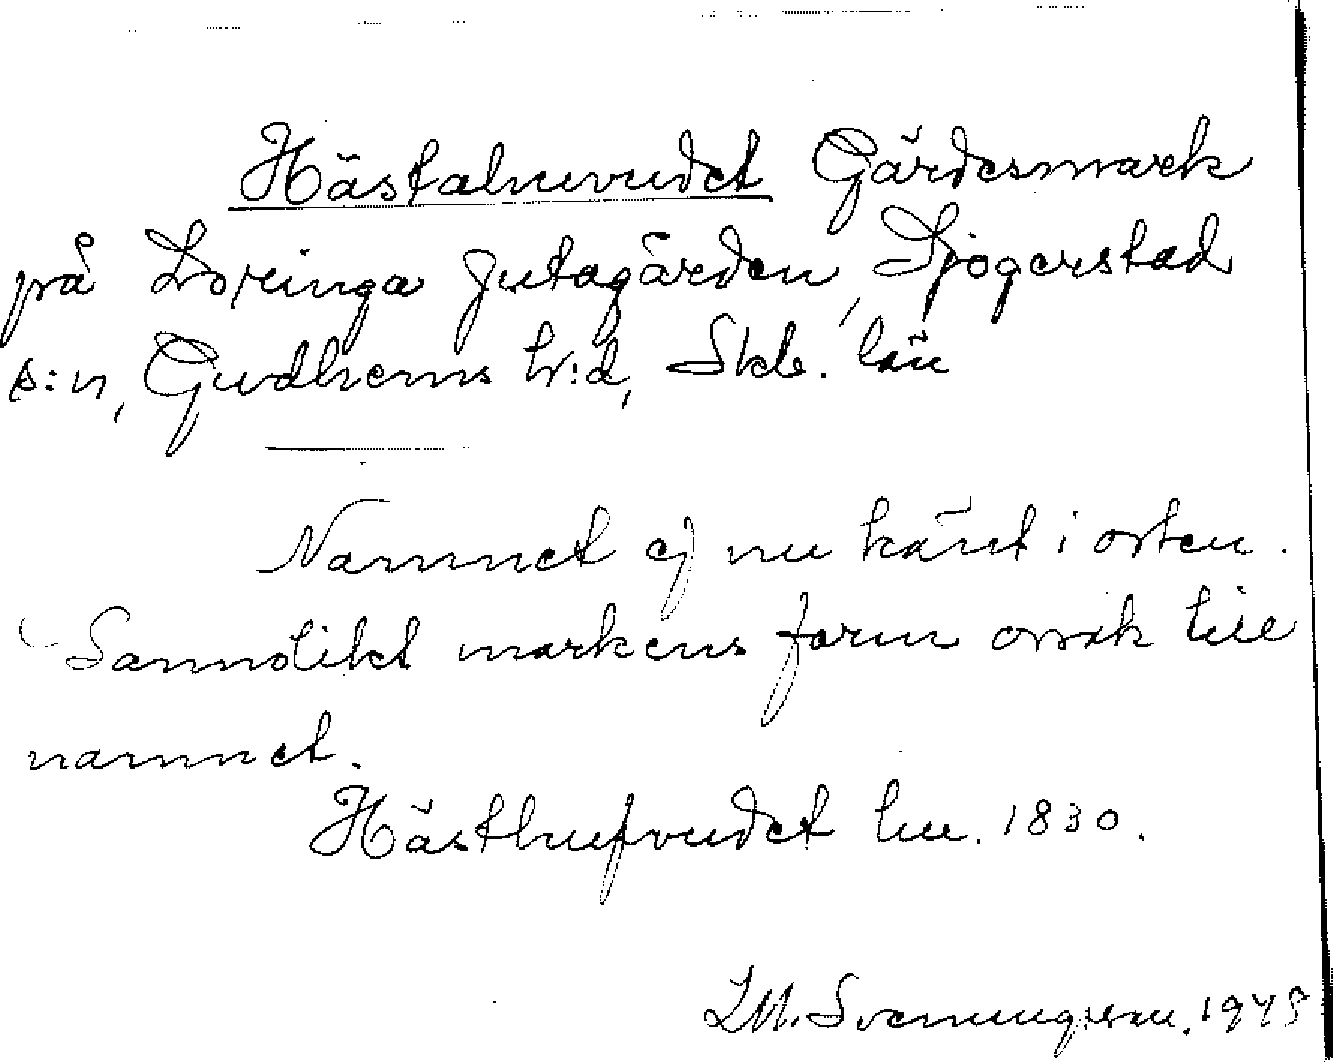 Hästahuvudet Gärdesmark
på Loringa Jutagården, Sjogerstad
s:n, Gudhems h:d, Skb. län
Namnet ej nu känt i orten.
Sannolikt markens form orsak till
namnet.
Hästhufvudet lm. 1830.
LM. Svenungsson. 1948